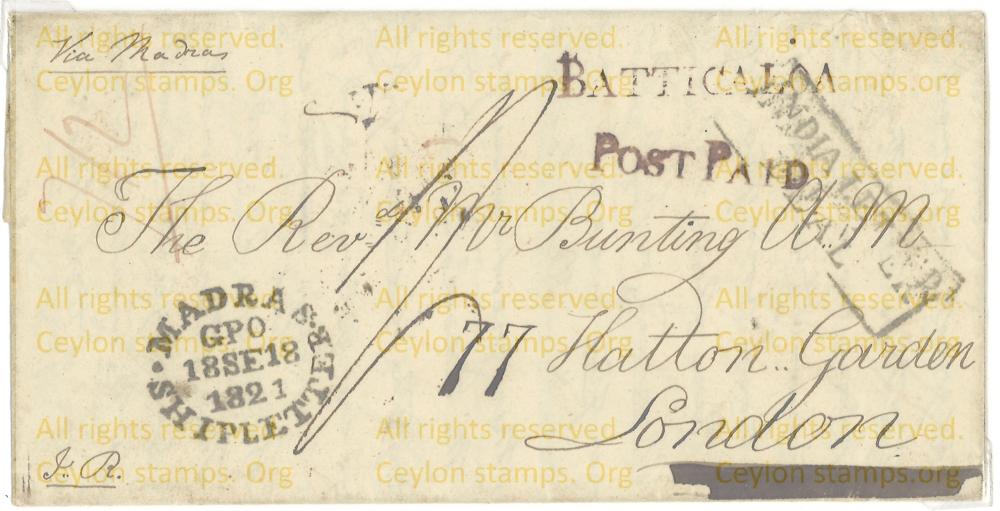 Via Madras
BATTICALOA
POST PAID
INDIA LETTER
The Revd. Mr Bunting A.M
77 Hatton Garden
London
MADRAS
GPO
18SE18
1821
SHIPLETTERS
J. R.
All rights reserved. All rights reserved. All rights reserved.
Ceylon stamps. Org Ceylon stamps. Org Ceylon stamps. Org
All rights reserved. All rights reserved. All rights reserved.
Ceylon stamps. Org Ceylon stamps. Org Ceylon stamps. Org
All rights reserved. All rights reserved. All rights reserved.
Ceylon stamps. Org Ceylon stamps. Org Ceylon stamps. Org
All rights reserved. All rights reserved. All rights reserved.
Ceylon stamps. Org Ceylon stamps. Org Ceylon stamps. Org